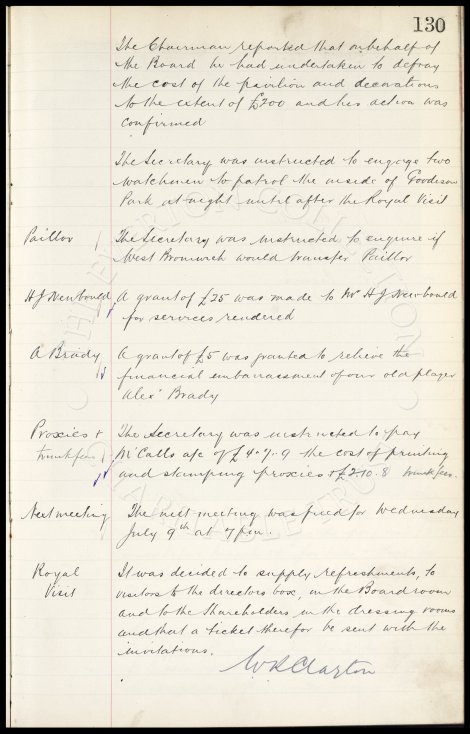 130
The Chairman reported that on behalf of
the Board he had undertaken to defray
the cost of the pavilion and decorations
to the extent of £200 and his action was
confirmed
The Secretary was instructed to engage two
watchmen to patrol the inside of Goodison
Park at night until after the Royal Visit
Paillor The Secretary was instructed to enquire if
West Bromwich would transfer Paillor
H J Newbould A grant of £25 was made to Mr H J Newbould
for services rendered
A Brady A grant of £5 was granted to relieve the
financial embarrassment of our old player
Alex Brady
Proxies + The Secretary was instructed to pay
trunk fees McCalls a/c of £4.7.9 the cost of printing
and stamping proxies + £2.10.8 trunk fees.
Next meeting The next meeting was fixed for Wednesday
July 9th at 7 pm.
Royal It was decided to supply refreshments, to
Visit visitors to the directors box, in the Board room
and to the Shareholders, in the dressing rooms
and that a ticket therefor be sent with the
invitations.
W R Clayton